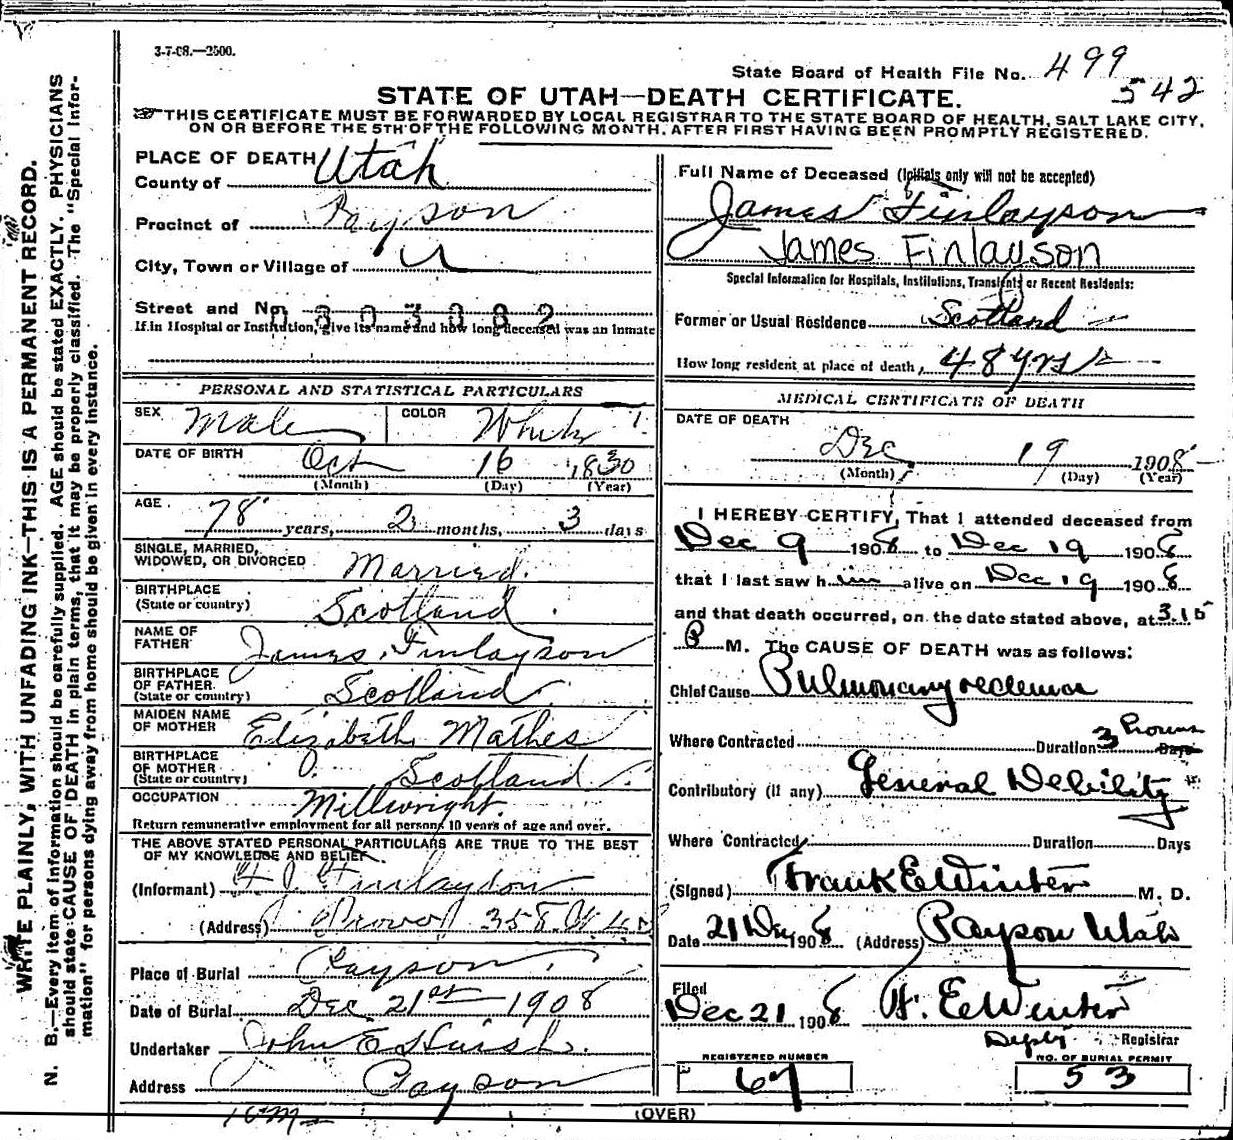 3-7-08.—2500.
State Board of Health File No. 499
542
STATE OF UTAH—DEATH CERTIFICATE.
THIS CERTIFICATE MUST BE FORWARDED BY LOCAL REGISTRAR TO THE STATE BOARD OF HEALTH, SALT LAKE CITY,
ON OR BEFORE THE 5TH OF THE FOLLOWING MONTH, AFTER FIRST HAVING BEEN PROMPTLY REGISTERED.
WRITE PLAINLY, WITH UNFADING INK—THIS IS A PERMANENT RECORD.
N. B.—Every item of information should be carefully supplied. AGE should be stated EXACTLY. PHYSICIANS
should state CAUSE OF DEATH in plain terms, that it may be properly classified. The "Special Infor-
mation" for persons dying away from home should be given in every instance.
PLACE OF DEATH
County of Utah
Precinct of Payson
City, Town or Village of
Street and No.
0303882
If in Hospital or Institution, give its name and how long deceased was an inmate
PERSONAL AND STATISTICAL PARTICULARS
SEX Male COLOR White
DATE OF BIRTH Oct 16 1830
(Month) (Day) (Year)
AGE 78 years, 2 months, 3 days
SINGLE, MARRIED,
WIDOWED, OR DIVORCED Married.
BIRTHPLACE
(State or country) Scotland
NAME OF
FATHER James Finlayson
BIRTHPLACE
OF FATHER
(State or country) Scotland
MAIDEN NAME
OF MOTHER Elizabeth Mathes
BIRTHPLACE
OF MOTHER
(State or country) Scotland
OCCUPATION Millwright.
Return remunerative employment for all persons 10 years of age and over.
THE ABOVE STATED PERSONAL PARTICULARS ARE TRUE TO THE BEST
OF MY KNOWLEDGE AND BELIEF
(Informant) Finlayson
(Address) Provo 358
Place of Burial Payson
Date of Burial Dec 21st 1908
Undertaker John E Huish.
Address Payson
Full Name of Deceased (Initials only will not be accepted)
James Finlayson
James Finlayson
Special Information for Hospitals, Institutions, Transients or Recent Residents:
Former or Usual Residence Scotland
How long resident at place of death, 48 yrs
MEDICAL CERTIFICATE OF DEATH
DATE OF DEATH
Dec 19 1908
(Month) (Day) (Year)
I HEREBY CERTIFY, That I attended deceased from
Dec 9 1908 to Dec 19 1908
that I last saw him alive on Dec 19 1908
and that death occurred, on the date stated above, at 3.15
P M. The CAUSE OF DEATH was as follows:
Chief Cause Pulmonary oedema
Where Contracted Duration 3 hours Days
Contributory (if any) General Debility
Where Contracted Duration Days
(Signed) Frank E Winter M. D.
Date 21 Dec 1908 (Address) Payson Utah
Filed
Dec 21 1908 H. E Winter
Deputy Registrar
REGISTERED NUMBER
67
NO. OF BURIAL PERMIT
53
(OVER)